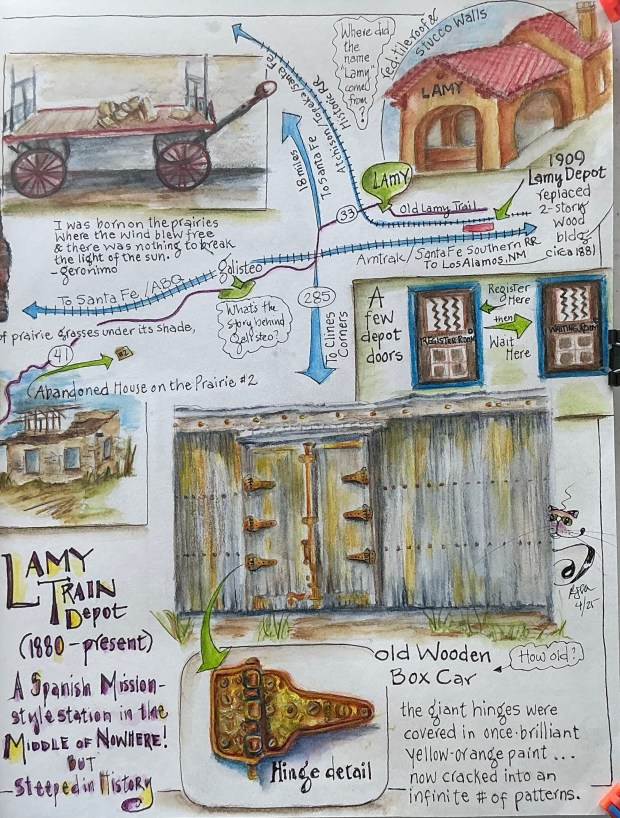 Where did
the
name
"Lamy"
come
from
?
red-tile roof &
stucco walls
LAMY
Atchison/Topeka/Santa Fe
Historic RR
18 miles
To Santa Fe
LAMY
33
Old Lamy Trail
1909
Lamy Depot
replaced
2-story
wood
bldg.
circa 1881
I was born on the prairies
where the wind blew free
& there was nothing to break
the light of the sun.
- geronimo
Amtrak/Santa Fe Southern RR
To Los Alamos, NM
Galisteo
To Santa Fe/ABQ
What's the
story behind
Galisteo?
285
To Clines
Corners
of prairie grasses under its shade,
41
#2
A
few
depot
doors
Register
Here
then
Wait
Here
REGISTER ROOM
WAITING ROOM
Abandoned House on the Prairie #2
LAMY
TRAIN
Depot
(1880-present)
A Spanish Mission-
style station in the
MIDDLE OF NOWHERE!
BUT
steeped in History
4/25
old Wooden
Box Car
How old?
Hinge detail
the giant hinges were
covered in once-brilliant
yellow-orange paint ...
now cracked into an
infinite # of patterns.